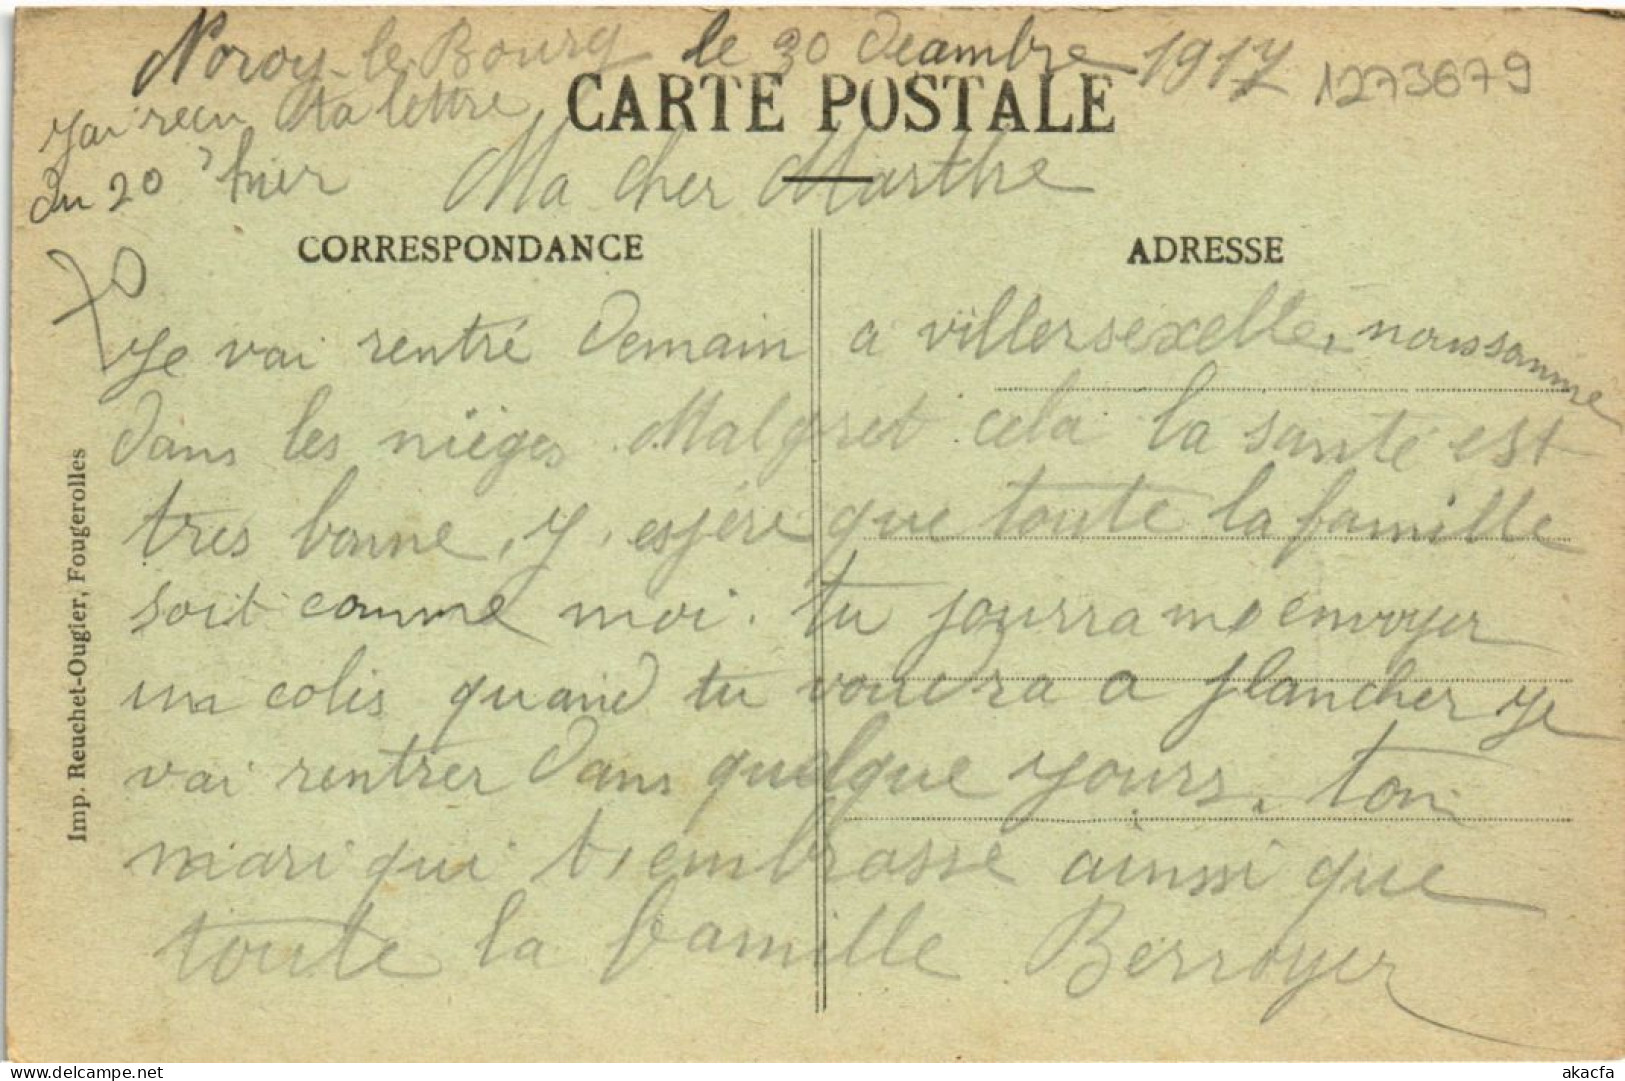 Noroy-le-Bourg le 30 decambre 1917
1273679
j'ai recu ta lettre
du 20 hier
CARTE POSTALE
Ma cher Marthe
CORRESPONDANCE
ADRESSE
70
Je vai rentré demain a villersexelle, nous somme
dans les nieges. Malgret cela la santé est
tres bonne, j, espère que toute la famille
soit comme moi. tu pourra me envoyer
un colis quand tu voudra a plancher je
vai rentrer dans quelque jours, ton
mari qui t, embrasse ainssi que
toute la famille Berroyer
Imp. Reuchet-Ougier, Fougerolles
Delcampe.net
akacfa